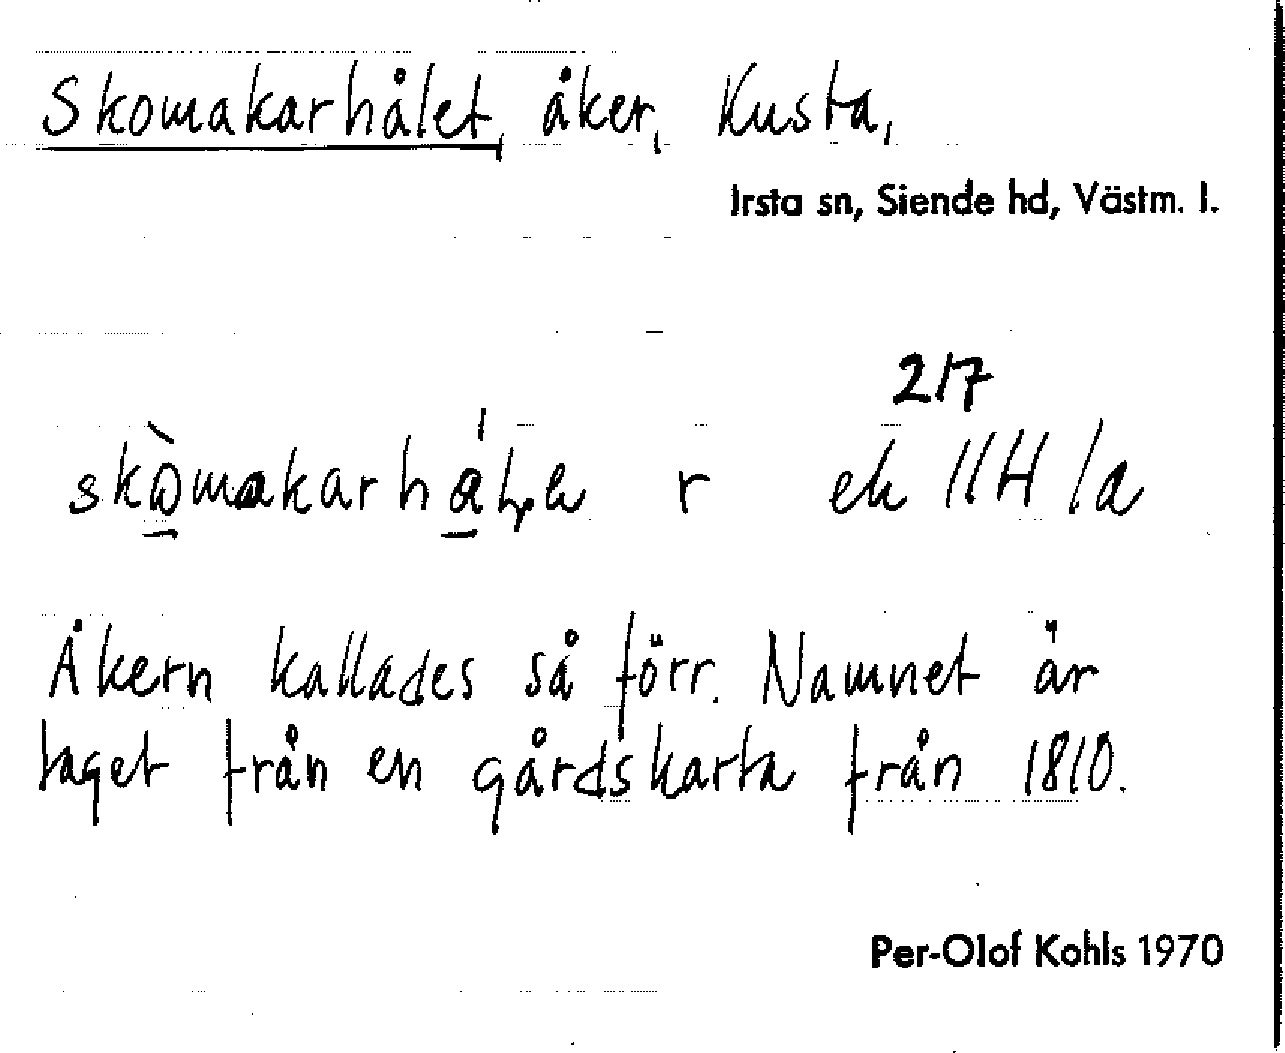 Skomakarhålet, åker, Kusta,
Irsta sn, Siende hd, Västm. l.
217
r ek 11H 1a
Åkern kallades så förr. Namnet är
taget från en gårdskarta från 1810.
Per-Olof Kohls 1970